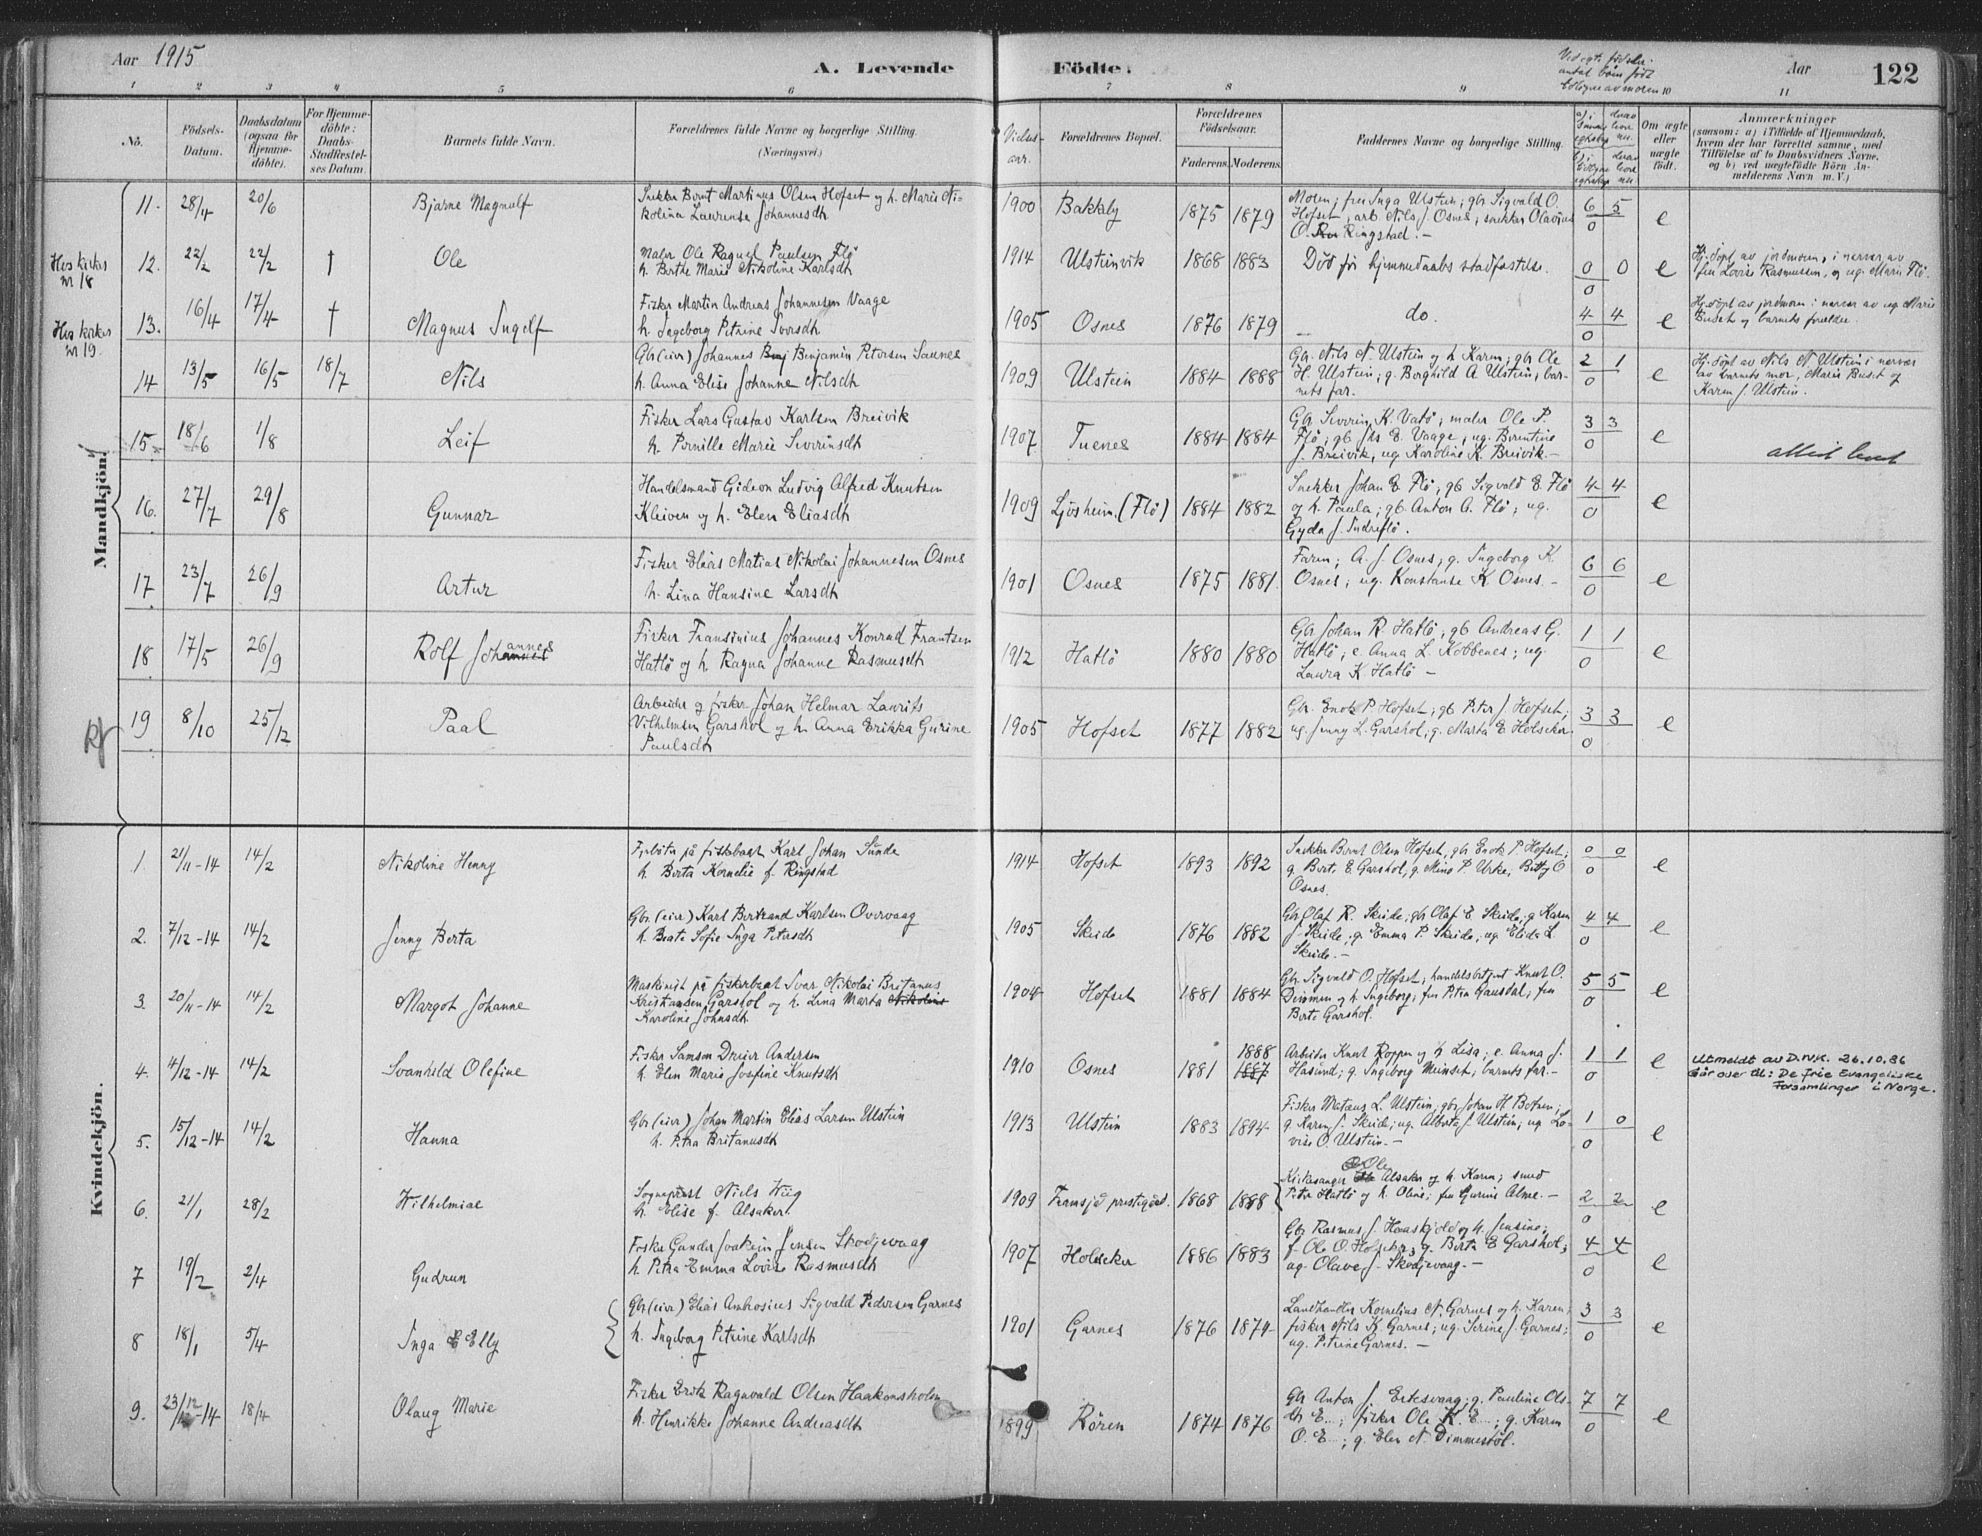 Aar 1915
A. Levende Födte.
Ved egte fødsler:
antal børn født
Aar
122
1 2 3 4 5 6 7 8 9 10 11
No.
Födsels-
Datum.
Daabsdatum
(ogsaa for
Hjemme-
döbte).
For Hjemme-
döbte:
Daabs-
Stadfæstel-
ses Datum.
Barnets fulde Navn.
Forældrenes fulde Navne og borgerlige Stilling.
(Næringsvei.)
Vielses-
aar.
Forældrenes Bopæl.
Forældrenes
Födselsaar.
Faderens. Moderens.
Faddernes Navne og borgerlige Stilling.
Om ægte
eller
uægte
födt.
Anmærkninger
(saasom: a) i Tilfælde af Hjemmedaab,
hvem der har forrettet samme, med
Tilföielse af to Daabsvidners Navne,
og b) ved uægtefödte Börn An-
melderens Navn m. V.)
Mandkjön.
11. 28/4 20/6
Bjarne Magnulf
Snekker Bernt Martinus Olsen Hofset og h. Marie Ni-
kolina Laurense Johannesdt
1900 Bakkby 1875 1879
Moren; fru Inga Ulstein; gbr Sigvald O.
Hofset, arb Nils J. Osnes, snekker Olavius
O. Ringstad. —
6 5
0
e
Hos kirken
nr 18
12. 22/2 22/2 †
Ole
Maler Ole Ragnvl Paulsen Flö
h. Berthe Marie Nikoline Karlsdt
1914 Ulsteinvik 1868 1883
Död før hjemmedaabs stadfæstelse.
0 0
0
e
Hj.døpt av jordmoren, i nærvær av
fru Lovise Rasmussen, og ug. Marie Flö.
Hos kirken
nr 19.
13. 16/4 17/4 †
Magnus Ingolf
Fisker Martin Andreas Johannesen Vaage
h. Ingeborg Petrine Iversdt
1905 Osnes 1876 1879
— do.
4 4
0
e
Hj.døpt av jordmoren i nærvær av ug. Marie
Buset og barnets forældre.
14 13/5 16/5 18/7
Nils
Gbr (eier) Johannes Benjamin Petersen Saunes
h. Anna Elise Johanne Nilsdt
1909 Ulstein 1884 1888
Gbr. Nils N. Ulstein og h. Karen; gbr Ole
H. Ulstein; g. Borghild A Ulstein, bar-
nets far.
2 1
0
e
Hj.døpt av Nils N Ulstein i nærvær
av barnets mor, Marie Buset og
Karen J. Ulstein.
15. 18/6 1/8
Leif
Fisker Lars Gustav Karlsen Breivik
h. Pernille Marie Severinsdt
1907 Tuenes 1884 1884
Gbr Severin K. Vatö; maler Ole P.
Flö; gb Johs E. Vaage; ug. Berentine
J. Breivik, ug Karoline K. Breivik. —
3 3
0
e
16. 27/7 29/8
Gunnar
Handelsmand Gideon Ludvig Alfred Knutsen
Kleiven og h. Elen Eliasdt
1909 Ljösheim (Flö) 1884 1882
Snekker Johan E. Flö; gb Sigvald E. Flö
og h. Paula; gb. Anton A. Flö; ug.
Gyda J. Indreflö.
4 4
0
e
17 23/7 26/9
Artur
Fisker Elias Matias Nikolai Johannesen Osnes
h. Lina Hansine Larsdt
1901 Osnes 1875 1881.
Faren; A. J. Osnes; g. Ingeborg K.
Osnes; ug. Konstanse K Osnes. —
6 6
0
e
18 17/5 26/9
Rolf Johannes
Fisker Fransinius Johannes Konrad Frantsen
Hatlö og h. Ragna Johanne Rasmusdt
1912 Hatlö 1880 1880
Gbr Johan R. Hatlö; gb Andreas G.
Hatlö; e. Anna L. Kobbenes; ug.
Laura K. Hatlö —
1 1
0
e
19 8/10 25/12
Paal
Arbeider og fisker Johan Helmar Laurits
Vilhelmsen Garshol og h. Anna Erikka Gurine
Paulsdt
1905 Hofset 1877 1882
Gbr. Enok P. Hofset; gb Peter J. Hofset;
ug. Jenny L. Garshol, g. Marta E Holseker.
3 3
0
e
Kvindekjön.
1. 21/11-14 14/2
Nikoline Henny
Fyrbøter på fiskebaat Karl Johan Sunde
h. Berta Kornelie f. Ringstad
1914 Hofset 1893 1892
Snekker Bernt Olsen Hofset, gbr Enok P. Hofset;
g. Bert. E. Garshol; g. Mina P. Urke, Betty O
Osnes.
0 0
0
e
2. 7/12-14 14/2
Jenny Berta
Gbr (eier) Karl Bertrand Karlsen Overvaag
h. Beate Sofie Inga Petersdt
1905 Skeide 1876 1882
Gbr Olaf R. Skeide; gbr Olaf E. Skeide; g Karen
J. Skeide; g. Emma P. Skeide; ug Elida L
Skeide. —
4 4
0
e
3. 20/11-14 14/2
Margot Johanne
Maskinist på fiskerbaat Ivar Nikolai Britanus
Kristiansen Garshol og h. Lina Marta
Karoline Johnsdt.
1904 Hofset 1881 1884
Gbr. Sigvald O. Hofset; handelsbetjent Knut O.
Dimmen og h. Ingeborg; fru Petra Gausdal; fru
Berte Garshol.
5 5
0
e
4. 4/12-14 14/2
Svanhild Olefine
Fisker Samson Dreier Andersen
h. Elen Marie Josefine Knutsdt
1910 Osnes 1881 1888 1887
Arbeider Knut Roppen og h Lisa; e. Anna J.
Hasund; g. Ingeborg Meinset; barnets far. —
1 1
0
e
Utmeldt av D.N.K. 26.10.86
Går over til: De frie Evangeliske
Forsamlinger i Norge.
5. 15/12-14 14/2
Hanna
Gbr (eier) Johan Martin Elias Larsen Ulstein
h. Petra Britanusdt
1913 Ulstein 1883 1894
Fisker Mataus L. Ulstein; gbr Johan H. Botnen;
g. Karen J. Skeide; ug. Alberta J. Ulstein, ug Lo-
vise O. Ulstein. —
1 0
0
e
6. 21/1 28/2
Wilhelmine
Sogneprest Niels Wiig
h. Elise f. Alsaker
1909 Framsjø prestegård. 1868 1888
Kirkesanger Ole Alsaker og h. Karen; smed
Peter Hatlö og h. Oline; fru Gurine Alme. —
2 2
0
e
7 19/2 2/4
Gudrun
Fisker Gunder Joakim Jensen Skodjevaag
h. Petra Emma Lovise Rasmusdt
1907 Holseker 1886 1883
Gbr Rasmus J. Haaskjold og h. Jensine;
f. Ole O. Holseker; g. Berta E Garshol;
ug. Olave J. Skodjevaag. —
4 4
0
e
8 18/1 5/4
Inga Elly
Gbr (eier) Elias Ambrosius Sigvald Pedersen Garnes
h. Ingeborg Petrine Karlsdt
1901 Garnes 1876 1874
Landhandler Kornelius N. Garnes og h. Karen;
fisker Nils K Garnes; ug. Serine J. Garnes;
ug. Petrine Garnes. —
3 3
0
e
9. 23/12-14 18/4
Olaug Marie
Fisker Erik Ragnvald Olsen Haakonsholm
h. Henrikke Johanne Andreasdt
1899 Rören 1874 1876
Gbr Anton J. Ertesvaag; g. Pauline Ols-
dt E...; fisker Ole K. E...; g. Karen
O. E...; g. Elen N. Dimmestöl.
7 7
0
e